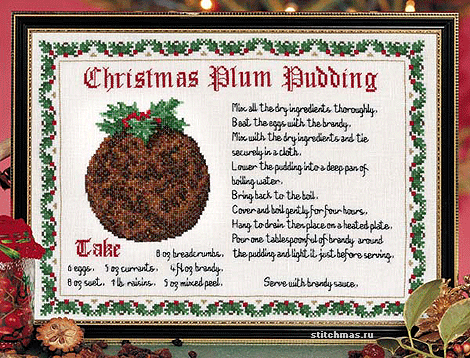 Christmas Plum Pudding
Mix all the dry ingredients thoroughly.
Beat the eggs with the brandy.
Mix with the dry ingredients and tie
securely in a cloth.
Lower the pudding into a deep pan of
boiling water.
Bring back to the boil.
Cover and boil gently for four hours.
Hang to drain then place on a heated plate.
Pour one tablespoonful of brandy around
the pudding and light it just before serving.
Serve with brandy sauce.
Take 8 oz breadcrumbs.
6 eggs. 5 oz currants. 4 fl oz brandy.
8 oz suet. 1 lb raisins. 5 oz mixed peel.
stitchmas.ru